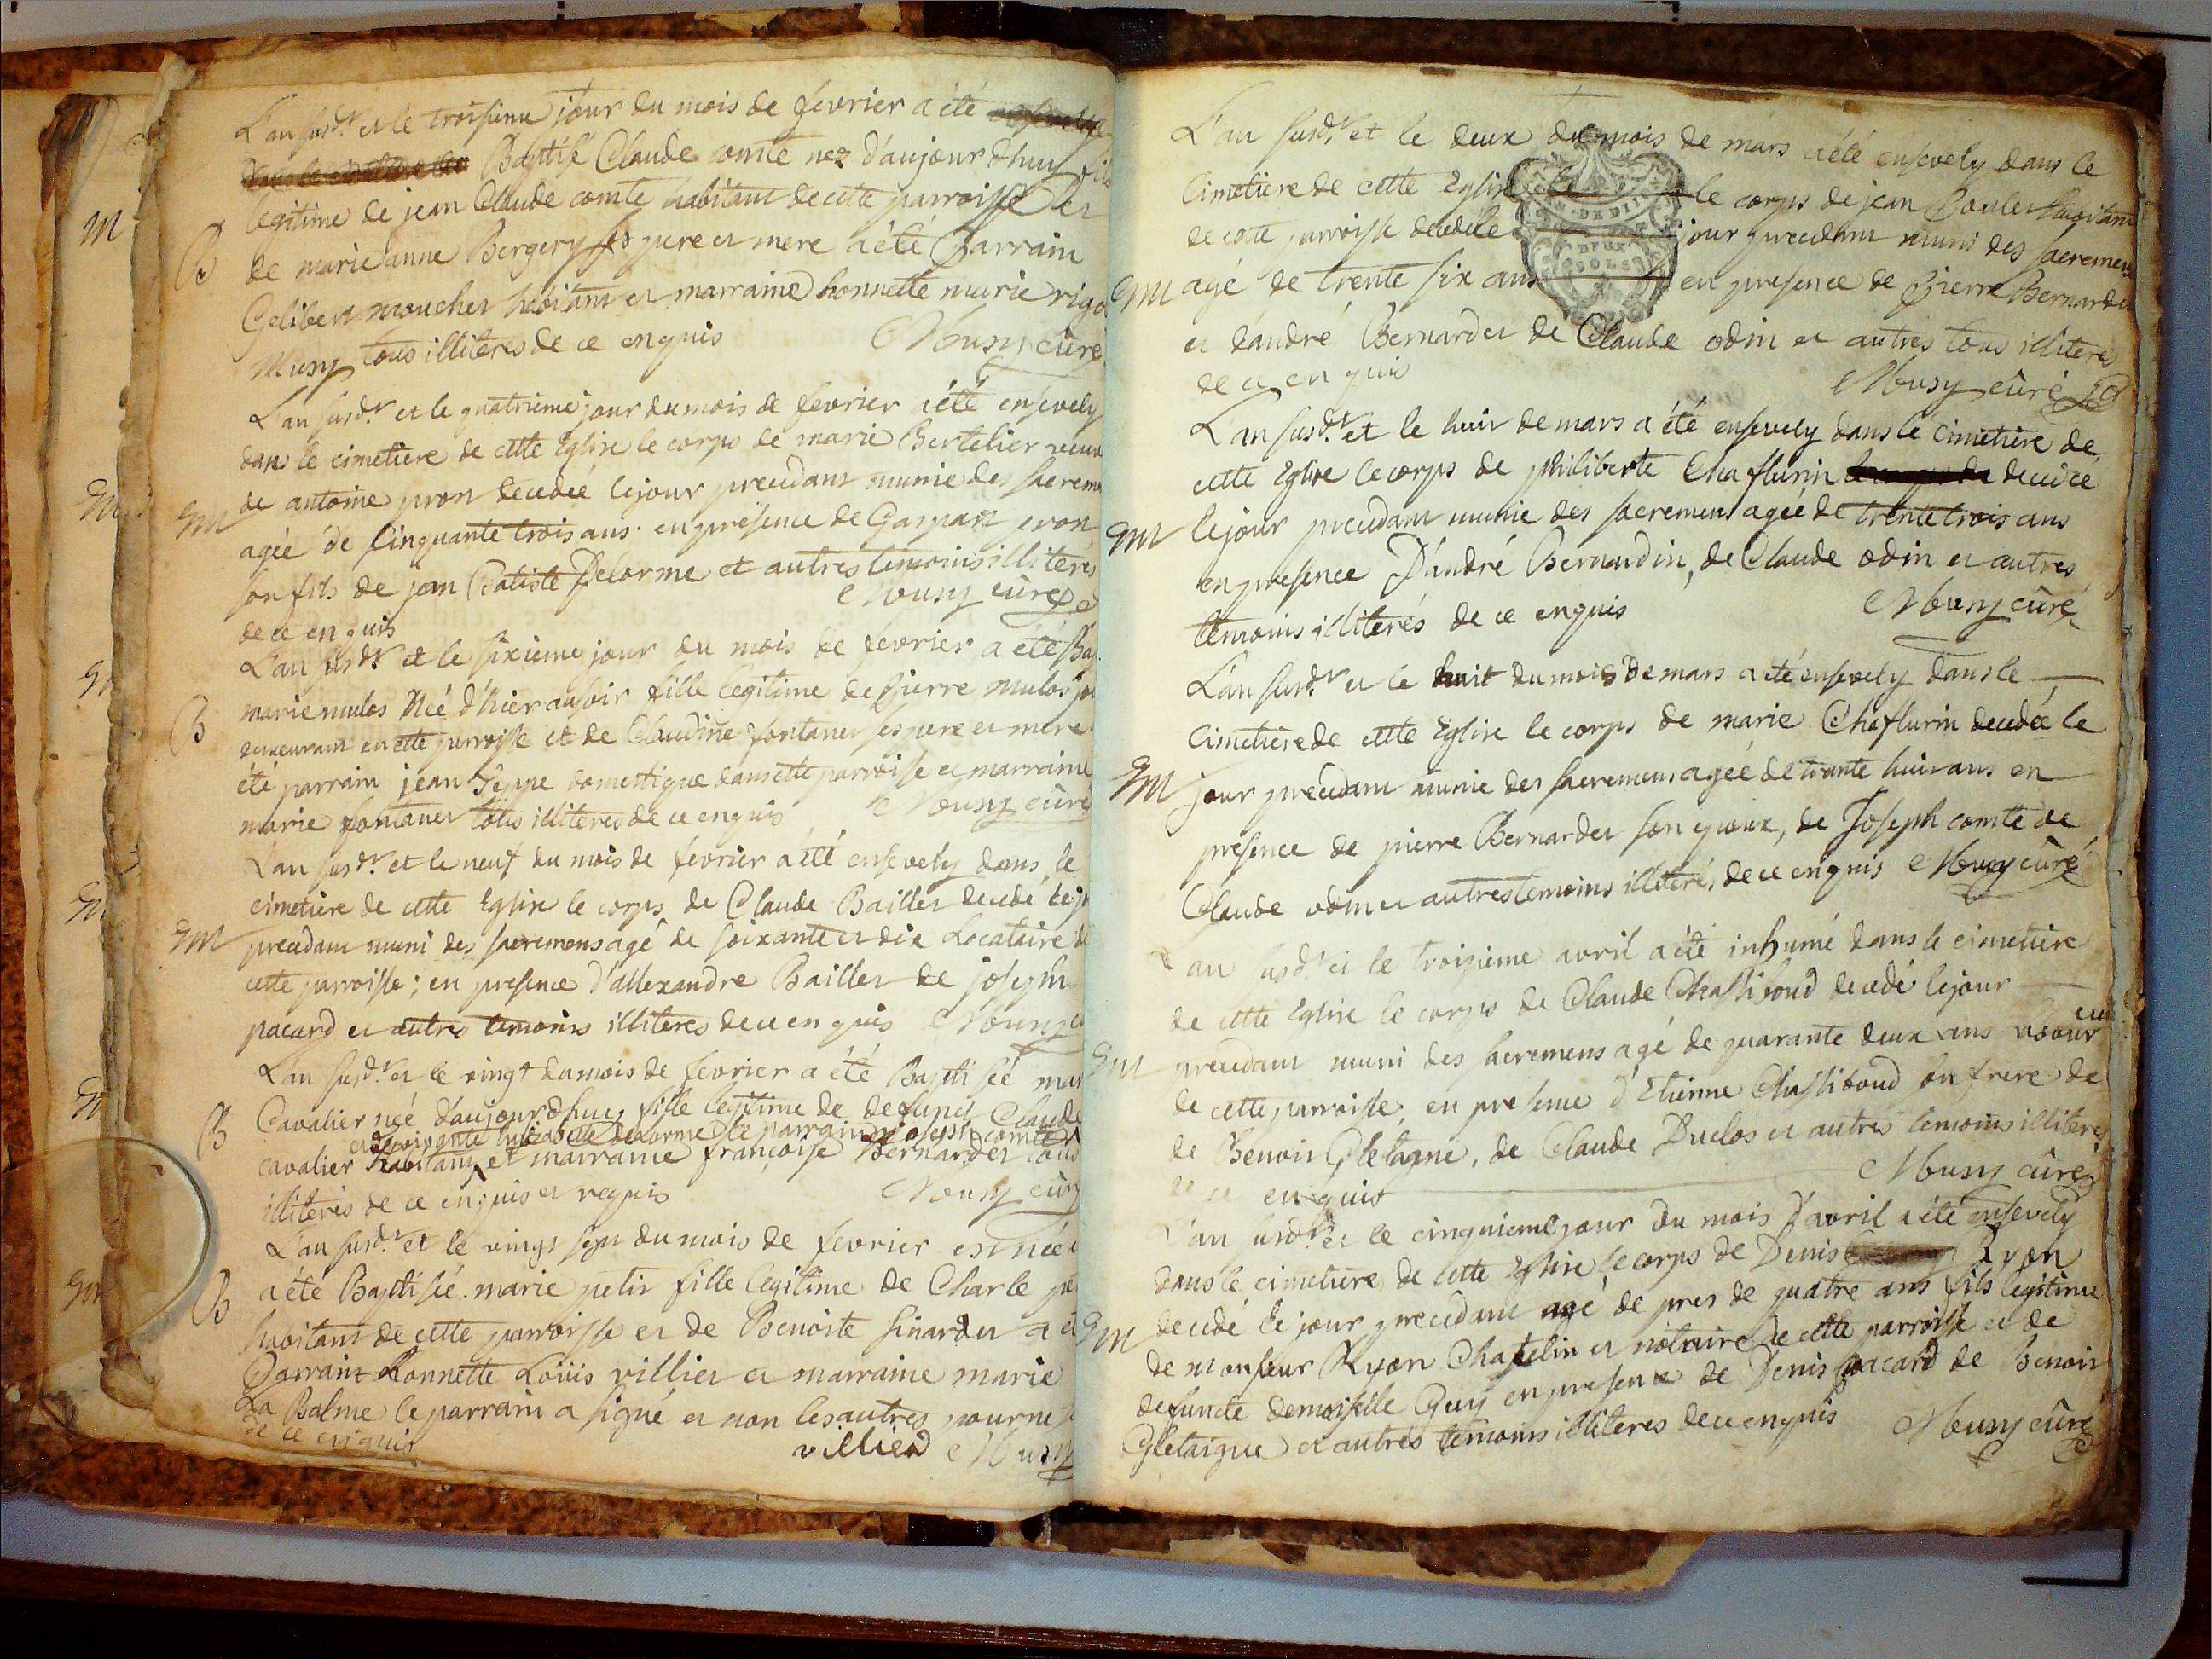 L'an susd.t et le troisieme jour du mois de fevrier a été
Baptisé Claude comte nez d'aujourd'huy fils
legitime de jean Claude comte habitant de cette parroisse et
B
de marie anne Bergery ses pere et mere a été Parrain
Gelibert moucher habitant et marraine honnette marie
Musy tous illiteres de ce enquis Musy cûré
L'an susd.t et le quatrieme jour du mois de fevrier a été ensevely
dans le cimetiere de cette Eglise le corps de marie Bertelier veuve
de antoine pron decedeé le jour precedant munie des sacrem
Em
ageé de cinquante trois ans en presence de Gaspar pron
son fils de jean Batiste Delorme et autres temoins illiterés
de ce enquis Musy cûré
L'an susd.t et le sixieme jour du mois de fevrier a été Bap
marie mulos Neé d'hier au soir fille legitime de Pierre mulos
B
demeurant en cette parroisse et de Claudine fontanet ses pere et mere
été parrain jean domestique dans cette parroisse et marraine
marie fontanet tous illiteres de ce enquis Mousy cûré
L'an susd.t et le neuf du mois de fevrier a été ensevely dans le
cimetiere de cette Eglise le corps de Claude Baillet decedé le j
Em
precedant muni des sacremens agé de soixante et dix Locataire de
cette parroisse; en presence d'allexandre Baillet de joseph
pacard et autres temoins illiteres de ce enquis Mousy
L'an susd.t et le vingt du mois de fevrier a été Baptiseé mar
B
Cavalier neé d'aujourd'huy fille legitime de defunct Claude
et de vivante delorme le parrain joseph comte
cavalier habitant et marraine françoise Bernardet tous
illiteres de ce enquis et requis Mousy cûré
L'an susd.t et le vingt sept du mois de fevrier est neé
B
a été Baptiseé marie petit fille legitime de Charle pe
havitant de cette parroisse et de Benoite sinardet a é
Parrain honnette Loüis villier et marraine marie
La Balme le parrain a signé et non les autres pour ne s
de ce enquis villier Musy
L'an susd.t et le deux du mois de mars a été ensevely dans le
Cimetiere de cette Eglise le corps de jean Boulet havitant
de cette parroisse decedé le jour precedant muni des sacremens
Em
agé de trente six ans en presence de Pierre Bernardet
DEUX
SOLS
et d'andré Bernardet de Claude odin et autres tous illiteres
de ce enquis Musy cûré
L'an susd.t et le huit de mars a été ensevely dans le cimetiere de
cette Eglise le corps de philiberte Chaflurin decedeé
Em
le jour precedant munie des sacremens ageé de trente trois ans
en presence D'andré Bernardin, de Claude odin et autres
temoins illiterés de ce enquis Musy cûré
L'an susd.t et le huit du mois de mars a été ensevely dans le
Cimetiere de cette Eglise le corps de marie Chaflurin decedeé le
Em
jour precedant munie des sacremens ageé de trante huit ans en
presence de pierre Bernardet son epoux, de Joseph comte de
Claude odin et autres temoins illiteré, de ce enquis Musy cûré
L'an susd.t et le troizieme avril a été inhumé dans le cimetiere
de cette Eglise le corps de Claude Chassiboud decedé le jour
Em
precedant muni des sacremens agé de quarante deux ans laboureur
de cette parroisse, en presence d'Etienne Chassiboud son frere de
de Benoit Gletagne, de Claude Duclos et autres temoins illiteres
de ce enquis Musy cûré
L'an susd.t et le cinquieme jour du mois d'avril a été ensevely
dans le cimetiere de cette Eglise le corps de Denis Ryon
Em
decedé le jour precedant agé de pres de quatre ans fils legitime
de monsieur Ryon Chatelin et notaire de cette parroisse et de
defuncte demoiselle Guy en presence de Denis pacard de Benoit
Gletaigne et autres temoins illiteres de ce enquis Musy cûré